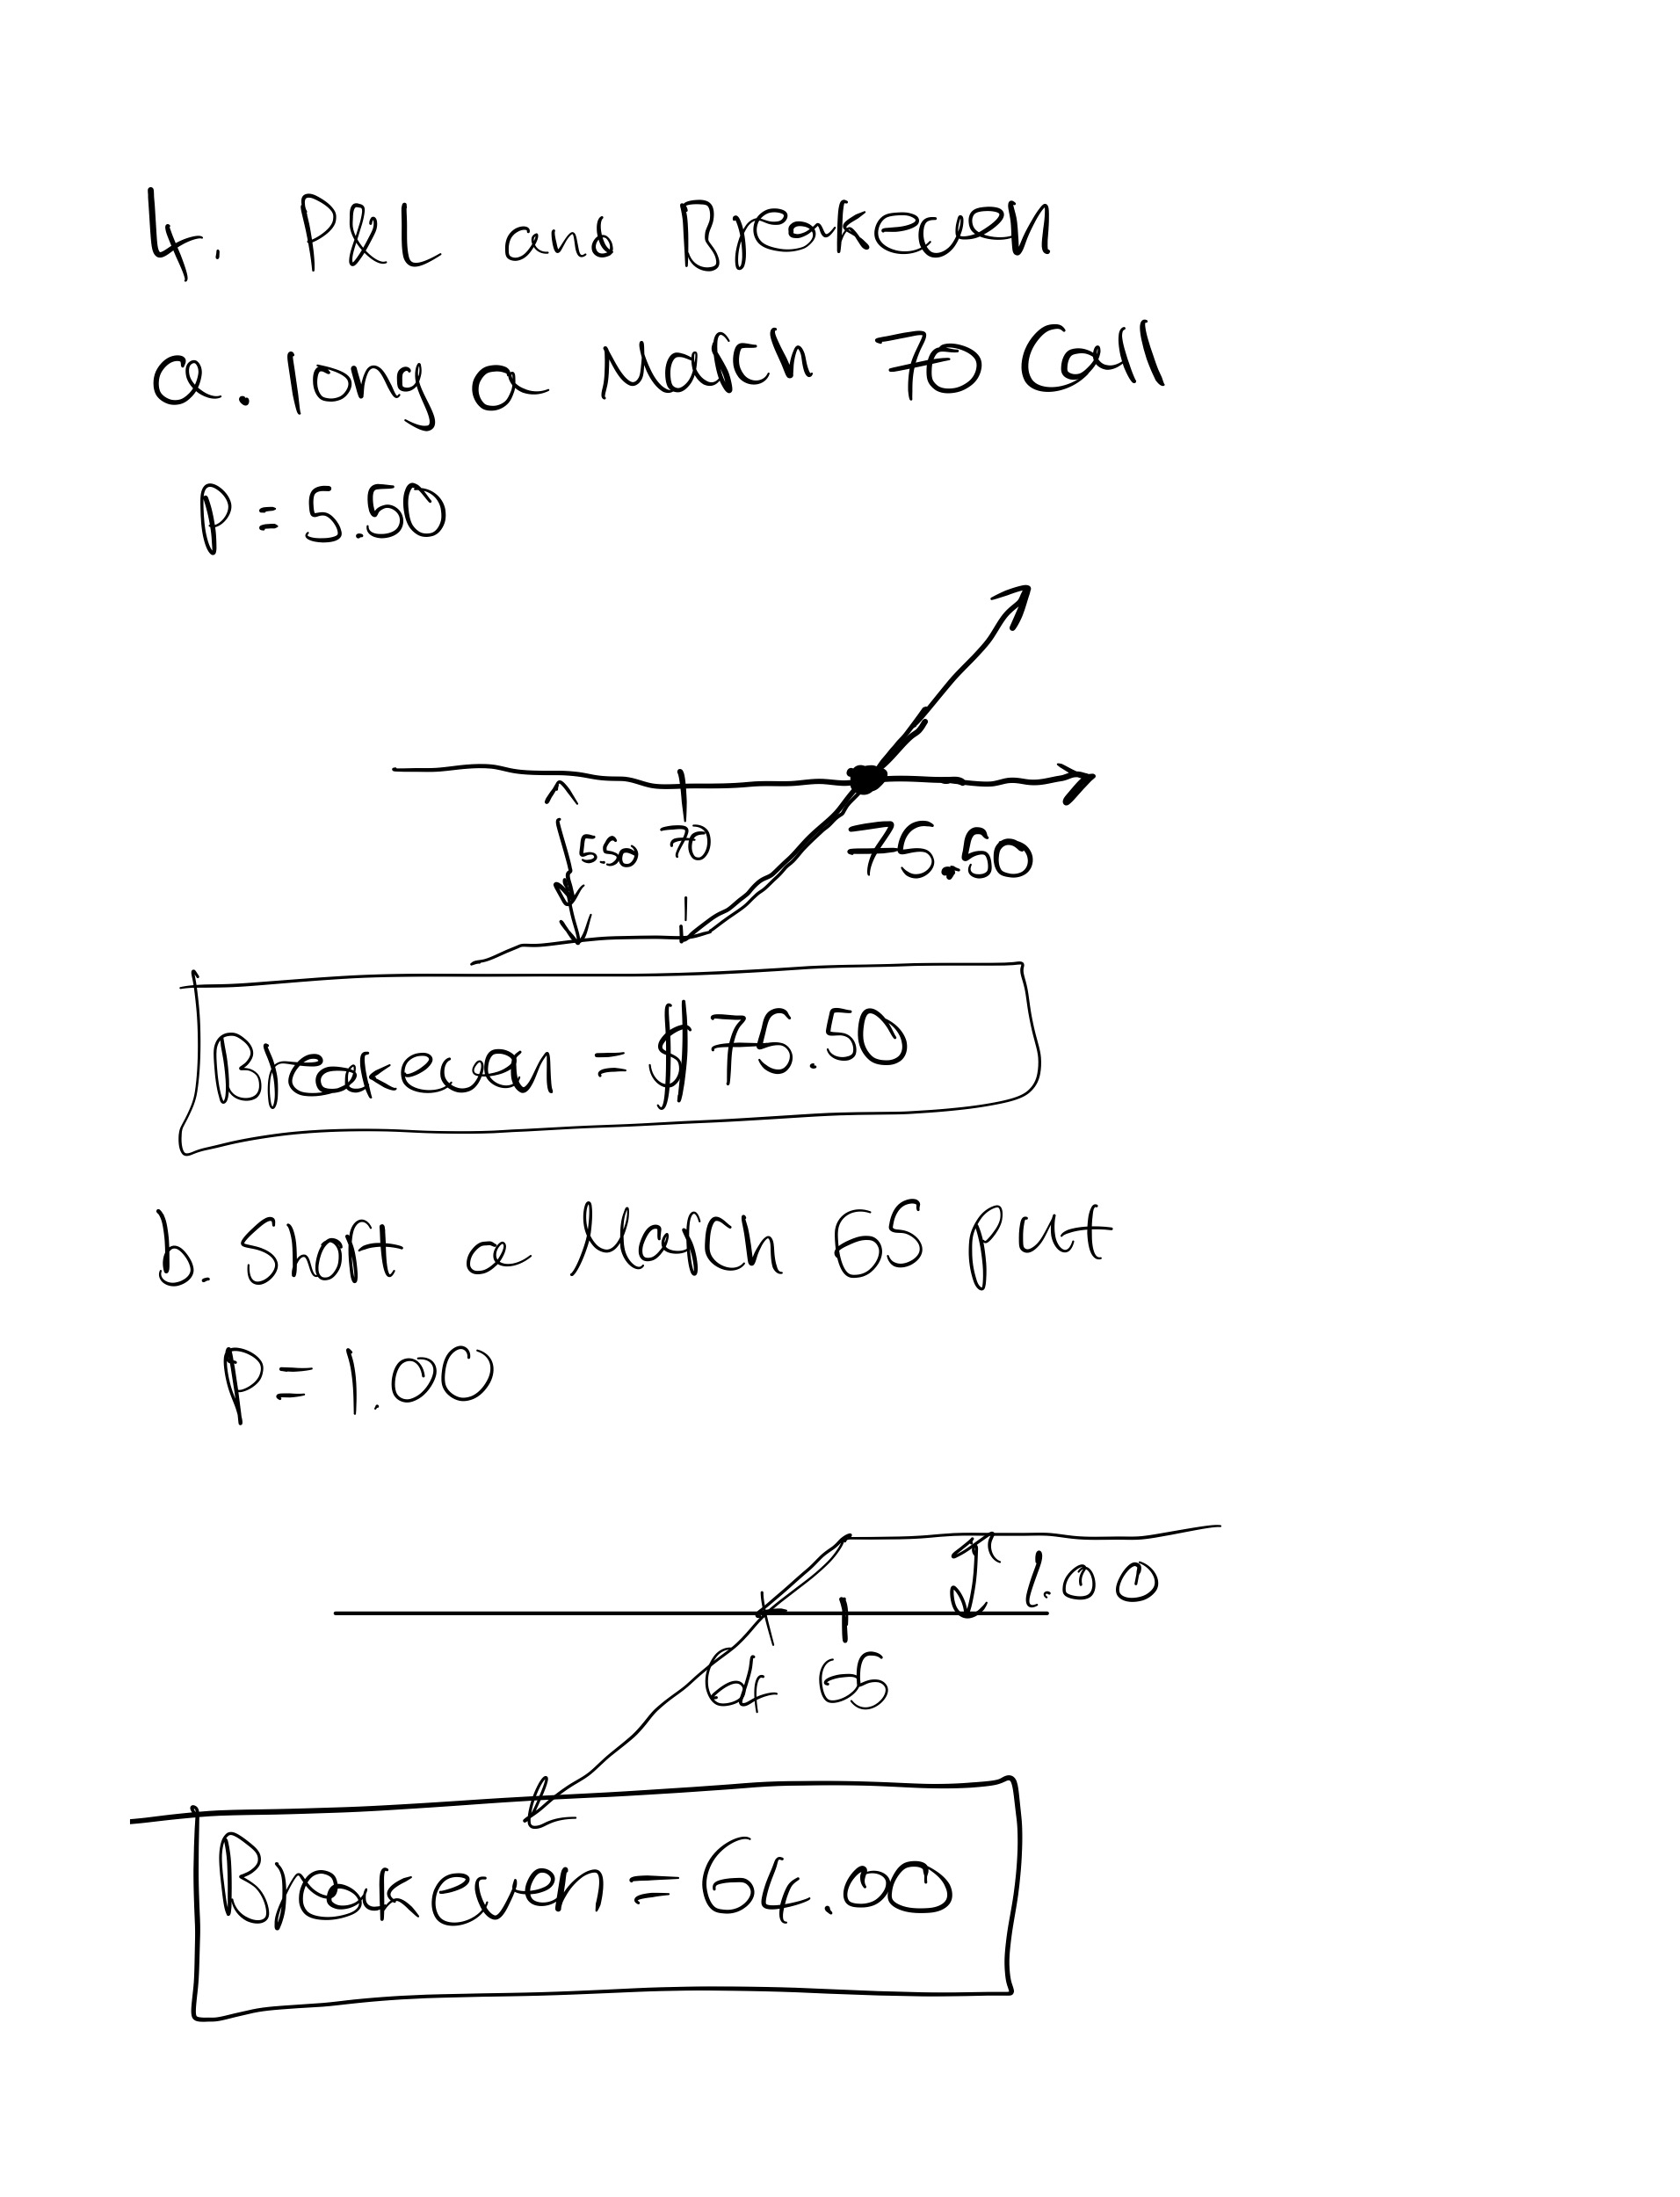 4. P&L and Breakeven
a. long a March 70 Call
P = 5.50
5.50 70 75.50
Breakeven = $75.50
b. Short a March 65 put
P = 1.00
1.00
64 65
Breakeven = 64.00